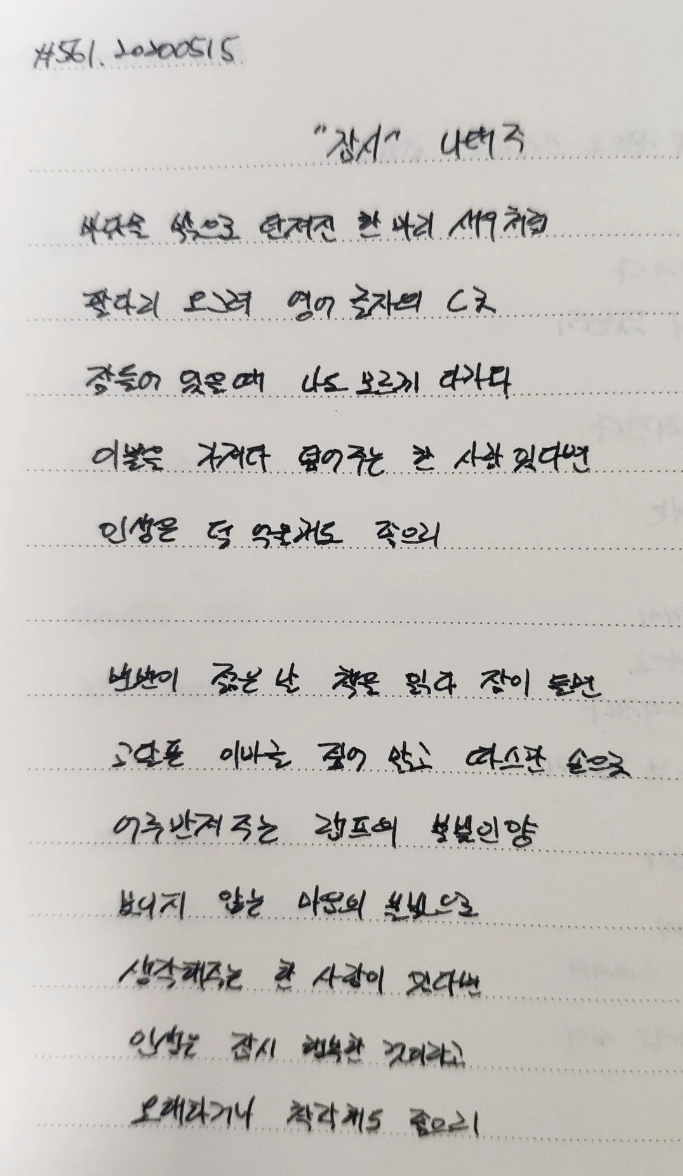 #561. 20200515
"잠시" 나태주
바닷물 밖으로 던져진 한 마리 새우처럼
팔다리 오그려 영어 글자의 C로
잠들어 있을 때 나도 모르게 다가와
이불을 가져다 덮어주는 한 사람 있다면
인생은 덜 억울해도 좋으리
번번이 젊은 날 책을 읽다 잠이 들면
고달픈 이마를 짚어 안고 따스한 손으로
어루만져 주는 램프의 불빛인양
보이지 않는 마음의 불빛으로
생각해주는 한 사람이 있다면
인생은 잠시 행복한 것이라고
오해하거나 착각해도 좋으리